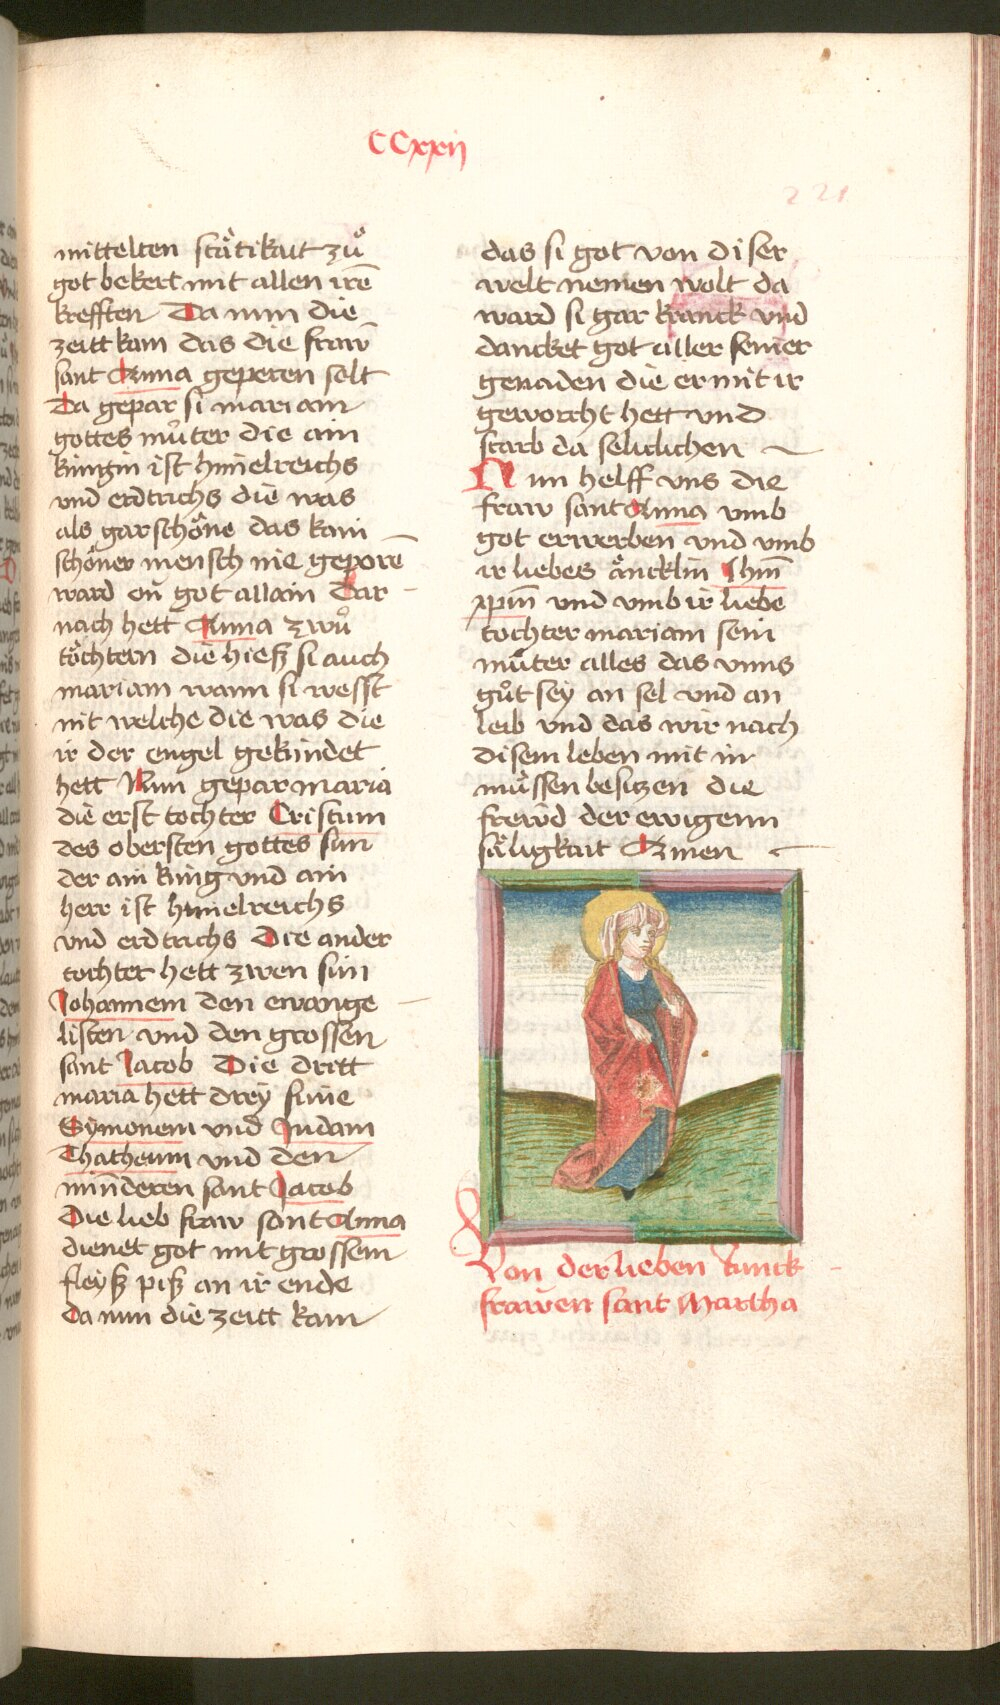 CCxxij
221
mittelten stätikait zů
got bekert mit allen irē
krefften Da nun die
zeitt kam das die fraw
sant Anna geperen solt
Da gepar si mariam
gottes můter die ain
kungin ist himelreichs
vnd erdtrichs die was
als gar schöne das kain
schöner mensch nie geporē
ward on got allain Dar
nach hett Anna zwů
töchtern die hieß si auch
mariam wann si wesst
nit welche die was die
ir der engel gekündet
hett Nun gepar maria
die erst tochter Cristum
des obersten gottes sun
der ain king vnd ain
herr ist himelreichs
vnd erdtrichs Die ander
tochter hett zwen sün
Johannem den ewange
listen vnd den grossen
sant Jacob Die dritt
maria hett drey süne
Symonem vnd Judam
Thatheum vnd den
minderen sant Jacob
Die lieb fraw sant Anna
dienet got mit grossem
fleyß piß an ir ende
Da nun die zeitt kam
das si got von diser
welt nemen wolt da
ward si gar kranck vnd
dancket got aller seiner
genaden die er mit ir
geworcht hett vnd
starb da seliclichen
Nun helff vns die
fraw sant Anna vmb
got erwerben vnd vmb
ir liebes äncklin Jhm̄
xp̄m vnd vmb ir liebe
tochter mariam sein
můter alles das vnns
gůt sey an sel vnd an
leib vnd das wir nach
disem leben mit in
müssen besitzen die
frewd der ewigenn
säligkait Amen
Von der lieben Junck
frawen sant Martha